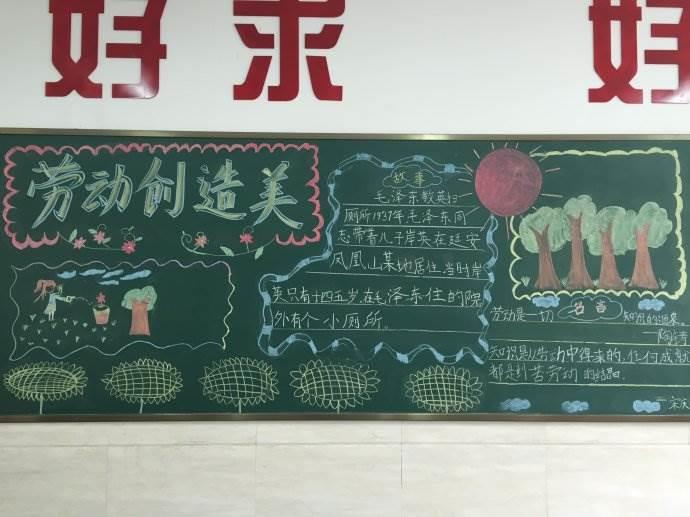 好 求 好
劳动创造美
故事
毛泽东教英扫
厕所1937年毛泽东同
志带着儿子岸英在延安
凤凰山某地居住,当时岸
英只有十四五岁,在毛泽东住的院
外有个小厕所。
名言
劳动是一切 知识的源泉。
一陶铸
知识是从劳动中得来的,任何成就
都是刻苦劳动的结晶。
一宋庆